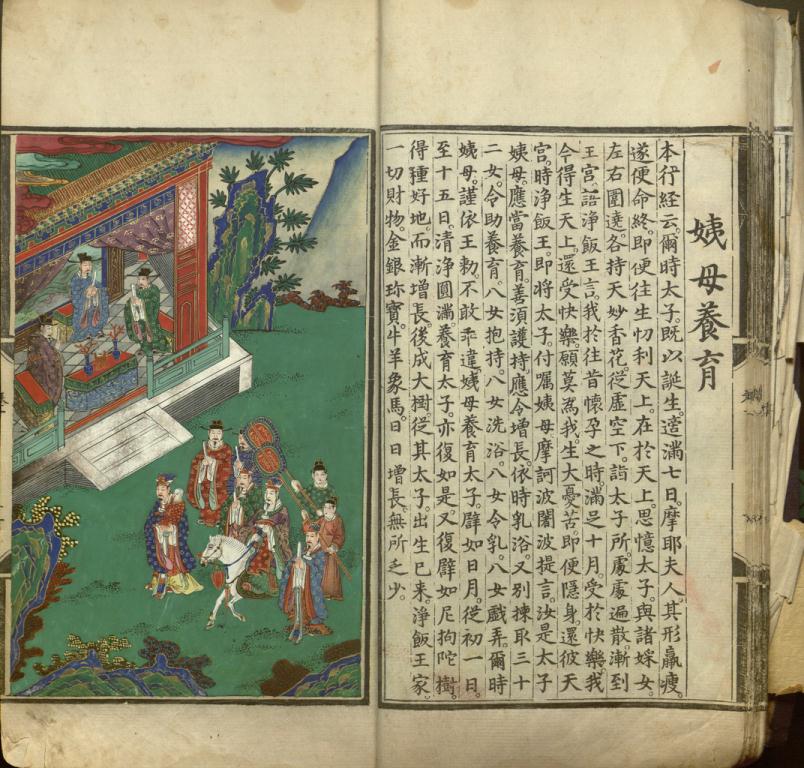 姨母養育
本行經云。爾時太子。既以誕生。適滿七日。摩耶夫人。其形羸瘦。
遂便命終。即便往生忉利天上。在於天上。思憶太子。與諸婇女。
左右圍遶。各持天妙香花。從虛空下。詣太子所。處處遍散。漸到
王宮。語淨飯王言。我於往昔懷孕之時。滿足十月。受於快樂。我
今得生天上。還受快樂。願莫為我。生大憂苦。即便隱身。還彼天
宮。時淨飯王。即將太子。付囑姨母。摩訶波闍波提言。汝是太子
姨母。應當養育。善須護持。應令增長。依時乳浴。又別揀取三十
二女。令助養育。八女抱持。八女洗浴。八女令乳。八女戲弄。爾時
姨母。謹依王勅。不敢乖違。姨母養育太子。譬如日月。從初一日。
至十五日。清淨圓滿。養育太子。亦復如是。又復譬如尼拘陀樹。
得種好地。而漸增長。後成大樹。從其太子。出生已來。淨飯王家。
一切財物。金銀珎寶。牛羊象馬。日日增長。無所乏少。